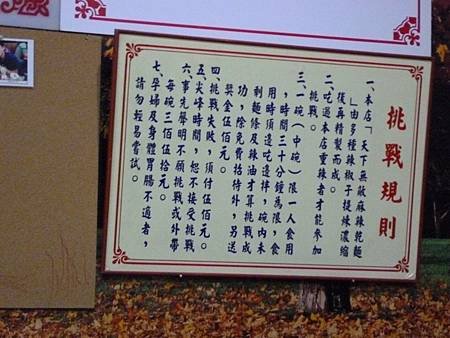 挑戰規則
一、本店「天下無敵麻辣乾麵
」由多種辣椒子提辣濃縮
後再精製而成。
二、吃過本店重辣者才能參加
挑戰。
三、一碗（中碗）限一人食用
，時間三十分鐘為限，食
用時須邊吃邊拌，碗內未
剩麵條及辣油才算挑戰成
功，除免費招待外，另送
獎金伍佰元。
四、挑戰失敗，須付伍佰元。
五、尖峰時間，恕不接受挑戰
六、事先聲明不願挑戰或外帶
每碗三佰伍拾元。
七、孕婦及身體胃腸不適者，
請勿輕易嘗試。